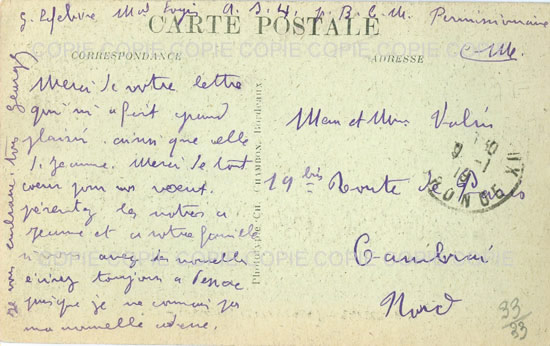 G. Lefebvre Mal Logis A.S.4. p. B.C.M. Permissionnaire
C.M.
CARTE POSTALE
CORRESPONDANCE
ADRESSE
Merci de votre lettre
qui m'a fait grand
plaisir ainsi que celle
de Jeanne. Merci de tout
coeur pour vos voeux.
présentez les notres a
Jeanne et a votre famille
avez de nouvelle
écrivez toujours a Pessac
puisque je ne connais pas
ma nouvelle adresse.
Je vous embrasse, Georges
Phototypie CH. CHAMBON, Bordeaux
Mr et Mme Valin
19 bis Route de Paris
Cambrai
Nord
33
33
COPIE COPIE COPIE COPIE COPIE